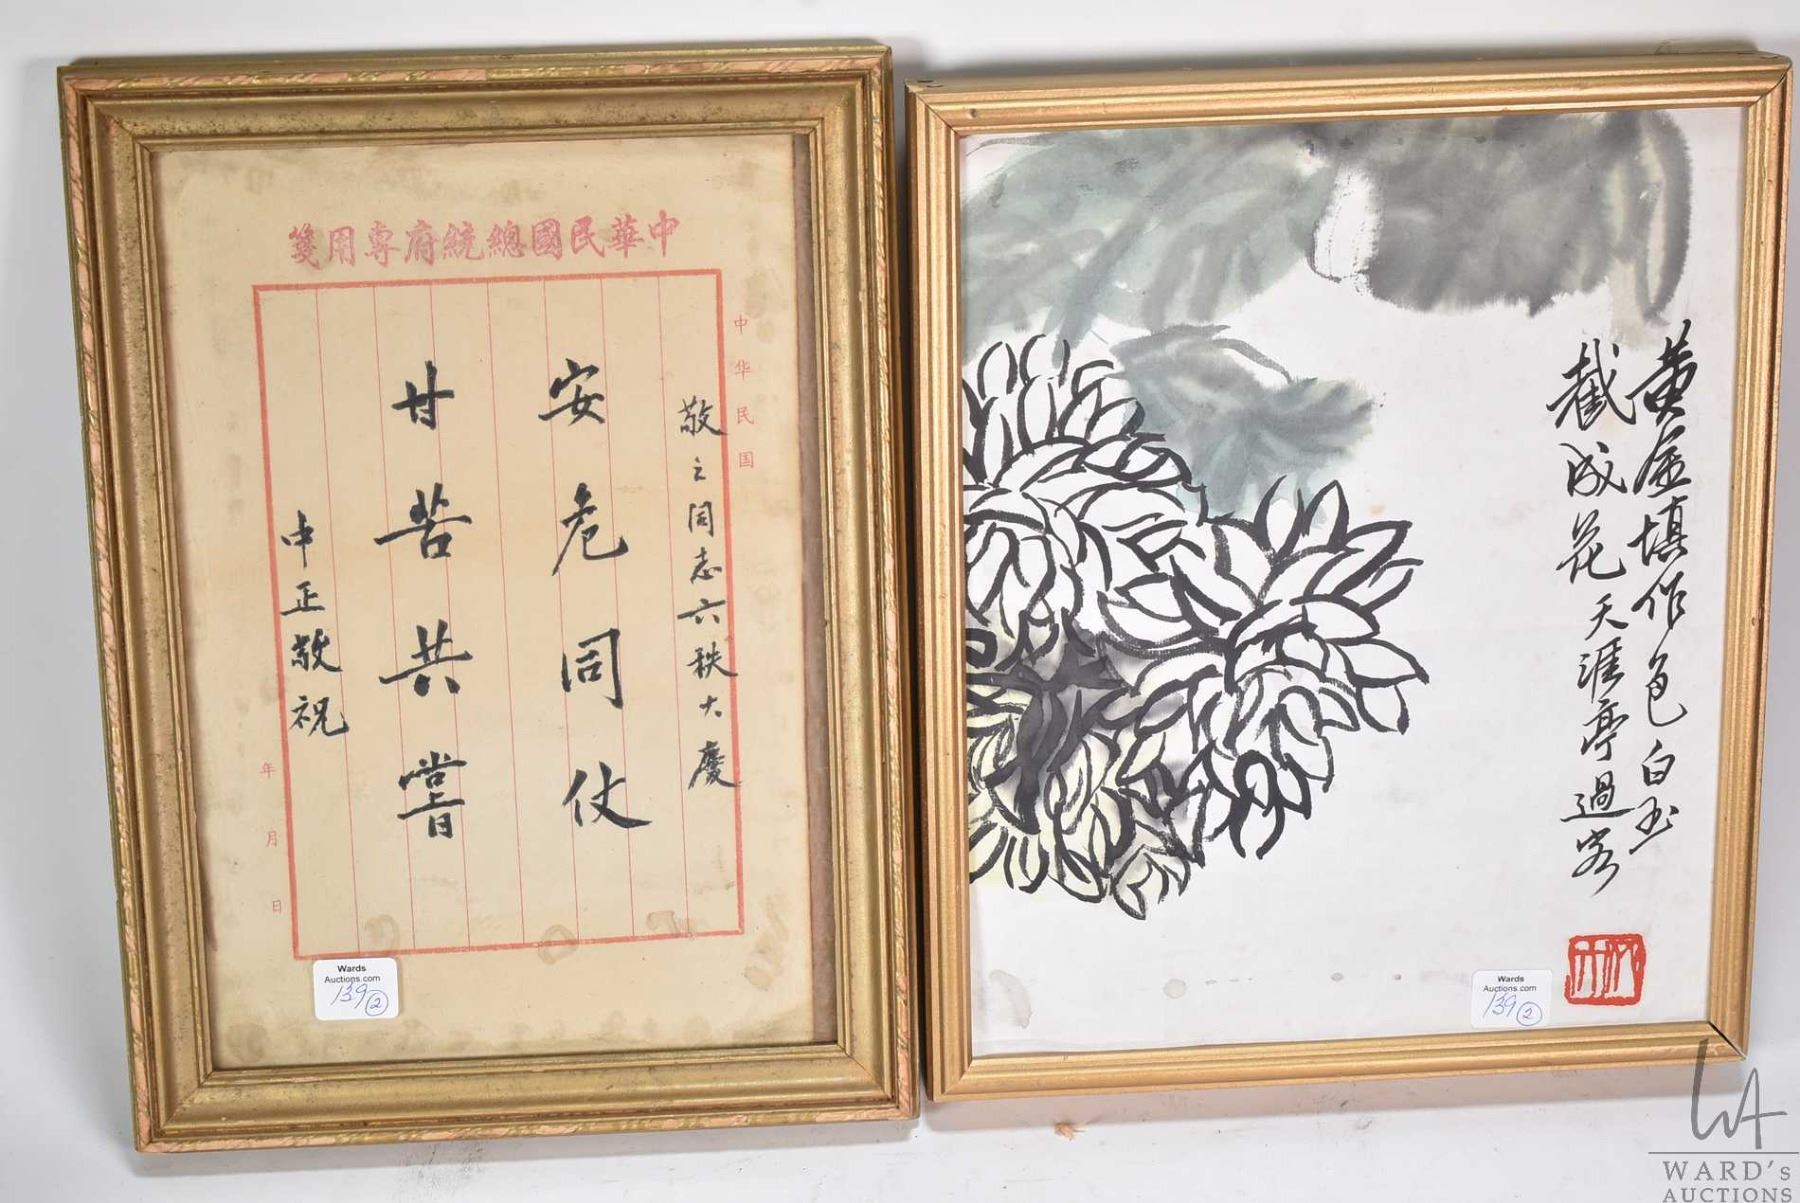 中華民國總統府專用箋
中华民国
敬之同志六秩大慶
安危同仗
甘苦共嘗
中正敬祝
年 月 日
Wards
Auctions.com
139 2
黄金填作色白玉
截成花 天涯亭過客
Wards
Auctions.com
139 2
WA
WARD's
AUCTIONS